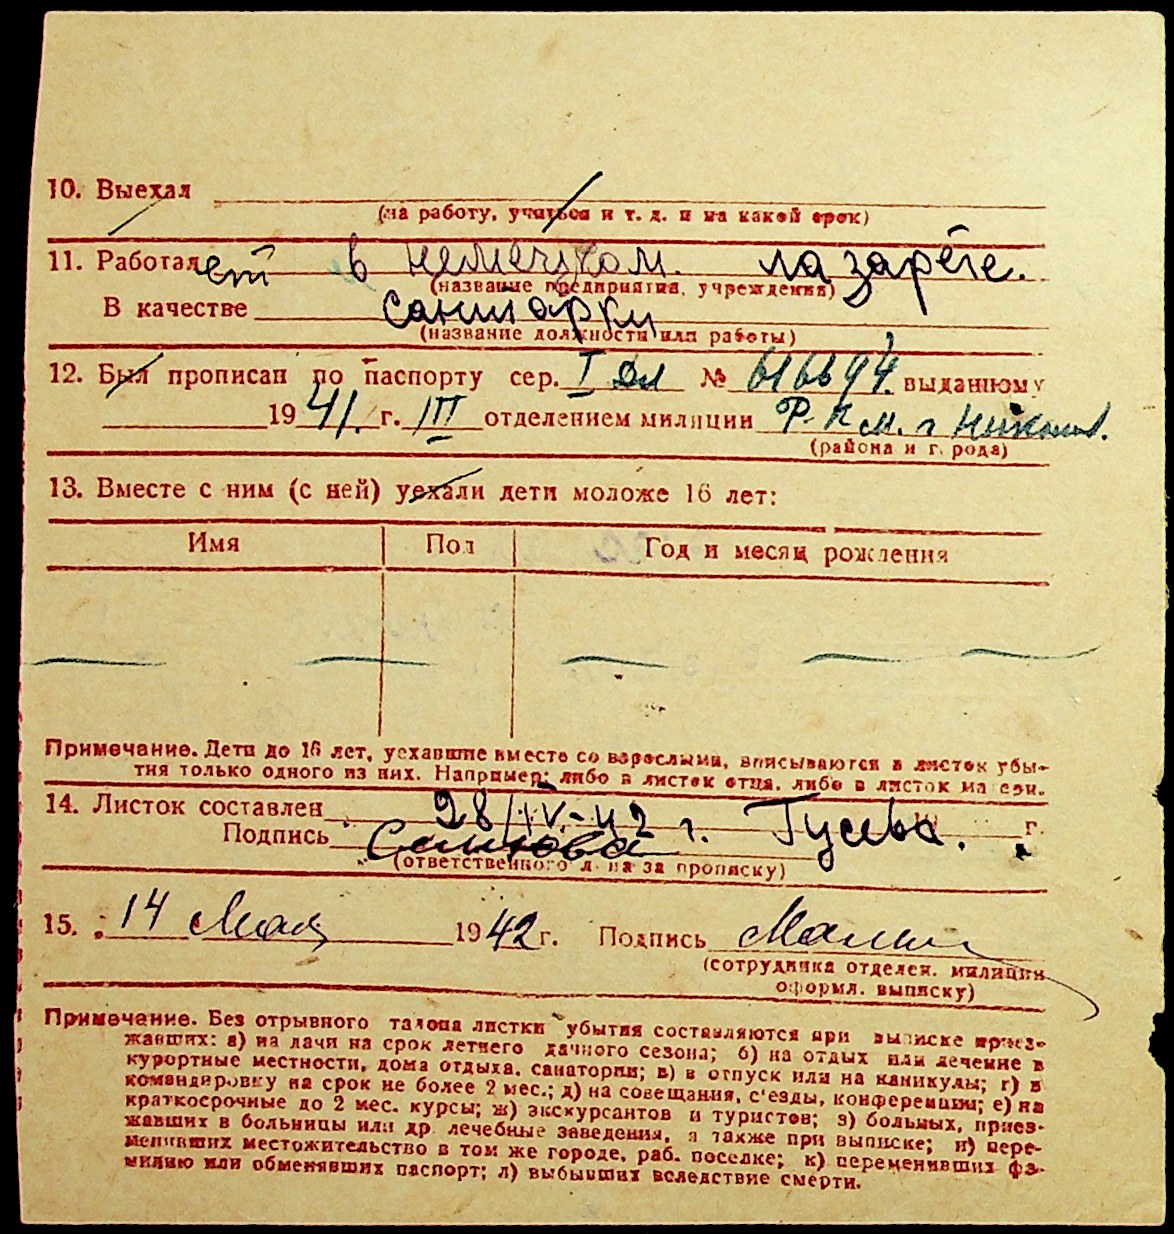 10. Выехал
(на работу, учиться и т. д. и на какой срок)
11. Работает в немечком. лазарете.
(название предприятия, учреждения)
В качестве санитарки
(название должности или работы)
12. Был прописан по паспорту сер. I № 616694 выданному
1941 г. III отделением милиции Р.К.М. г Никол.
(района и города)
13. Вместе с ним (с ней) уехали дети моложе 16 лет:
Имя Пол Год и месяц рождения
Примечание. Дети до 16 лет, уехавшие вместе со взрослыми, вписываются в листок убы-
тия только одного из них. Например: либо в листок отца, либо в листок матери.
14. Листок составлен 28/IV-42 г. Гусева. г.
Подпись
(ответственного лица за прописку)
15. 14 Мая 1942 г. Подпись
(сотрудника отделен. милиции
оформл. выписку)
Примечание. Без отрывного талона листки убытия составляются при выписке приез-
жавших: а) на дачи на срок летнего дачного сезона; б) на отдых или лечение в
курортные местности, дома отдыха, санатории; в) в отпуск или на каникулы; г) в
командировку на срок не более 2 мес.; д) на совещания, с'езды, конференции; е) на
краткосрочные до 2 мес. курсы; ж) экскурсантов и туристов; з) больных, приез-
жавших в больницы или др. лечебные заведения, а также при выписке; и) пере-
менивших местожительство в том же городе, раб. поселке; к) переменивших фа-
милию или обменявших паспорт; л) выбывших вследствие смерти.